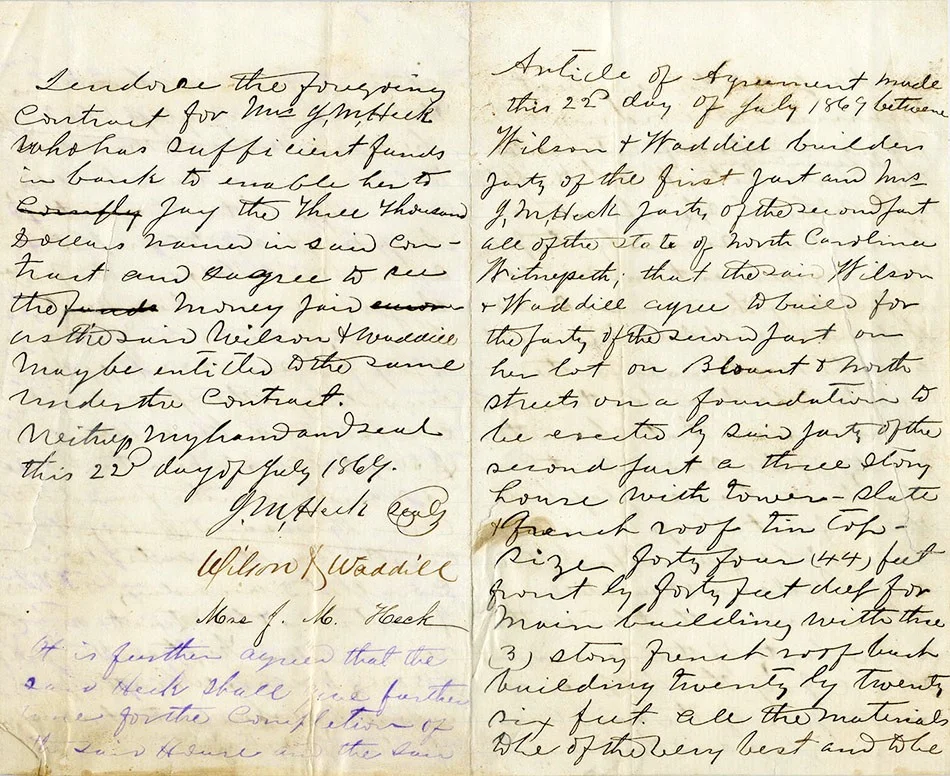 I endorse the foregoing
Contract for Mrs J, M, Heck
who has sufficient funds
in bank to enable her to
Comply pay the three thousand
Dollars named in said Con-
tract and so agree to see
the funds money paid
as the said Wilson & Waddill
may be entitled to the same
under the Contract.
Witness my hand and seal
this 22d day of July 1869.
J. M, Heck Seal
Wilson & Waddill
Mrs J. M. Heck
It is further agreed that the
said Heck shall give further
time for the Completion of
said House and the said
Article of Agreement made
this 22d day of July 1869 between
Wilson & Waddill builders
party of the first part and Mrs
J, M, Heck party of the second part
all of the state of North Carolina
Witnesseth; that the said Wilson
& Waddill agree to build for
the party of the second part on
her lot on Blount & North
streets on a foundation to
be erected by said party of the
second part a three story
house with tower - slate
& French roof tin top -
size forty four (44) feet
front by forty feet deep for
Main building with three
(3) story French roof back
building twenty by twenty
six feet. All the materials
to be of the very best and to be